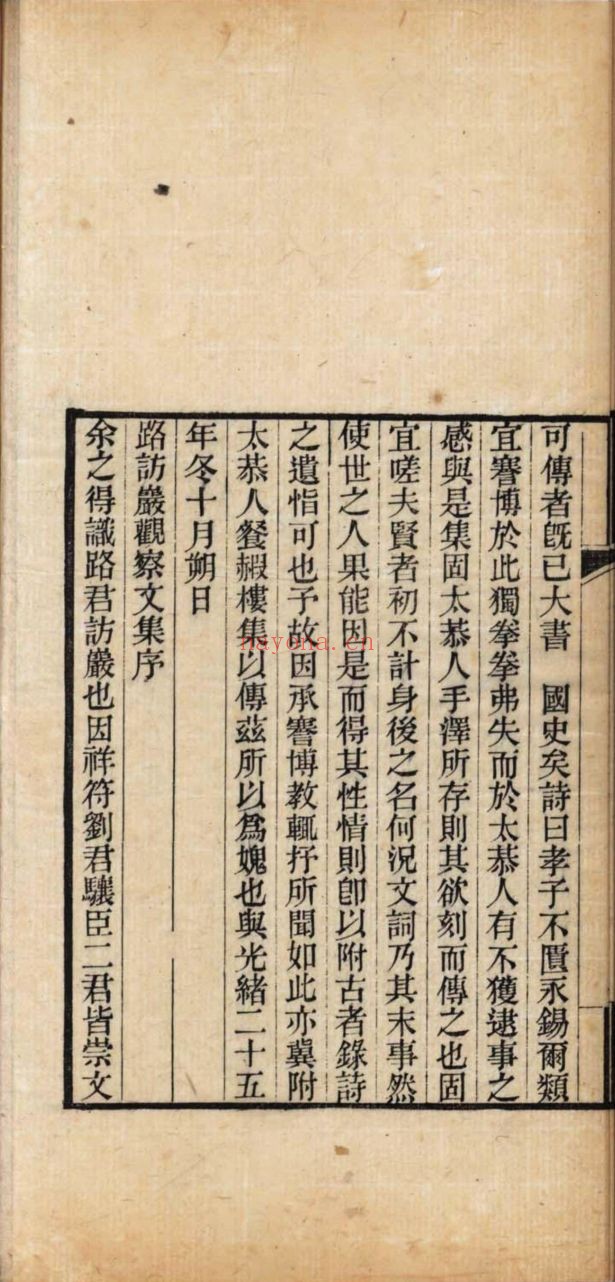 可傳者旣已大書　國史矣詩曰孝子不匱永錫爾類
宜謇博於此獨拳拳弗失而於太恭人有不獲逮事之
感與是集固太恭人手澤所存則其欲刻而傳之也固
宜嗟夫賢者初不計身後之名何況文詞乃其末事然
使世之人果能因是而得其性情則卽以附古者錄詩
之遺恉可也予故因承謇博教輒抒所聞如此亦冀附
太恭人餐霞樓集以傳茲所以爲媿也與光緒二十五
年冬十月朔日
路訪巖觀察文集序
余之得識路君訪巖也因祥符劉君驤臣二君皆崇文
nayona.cn